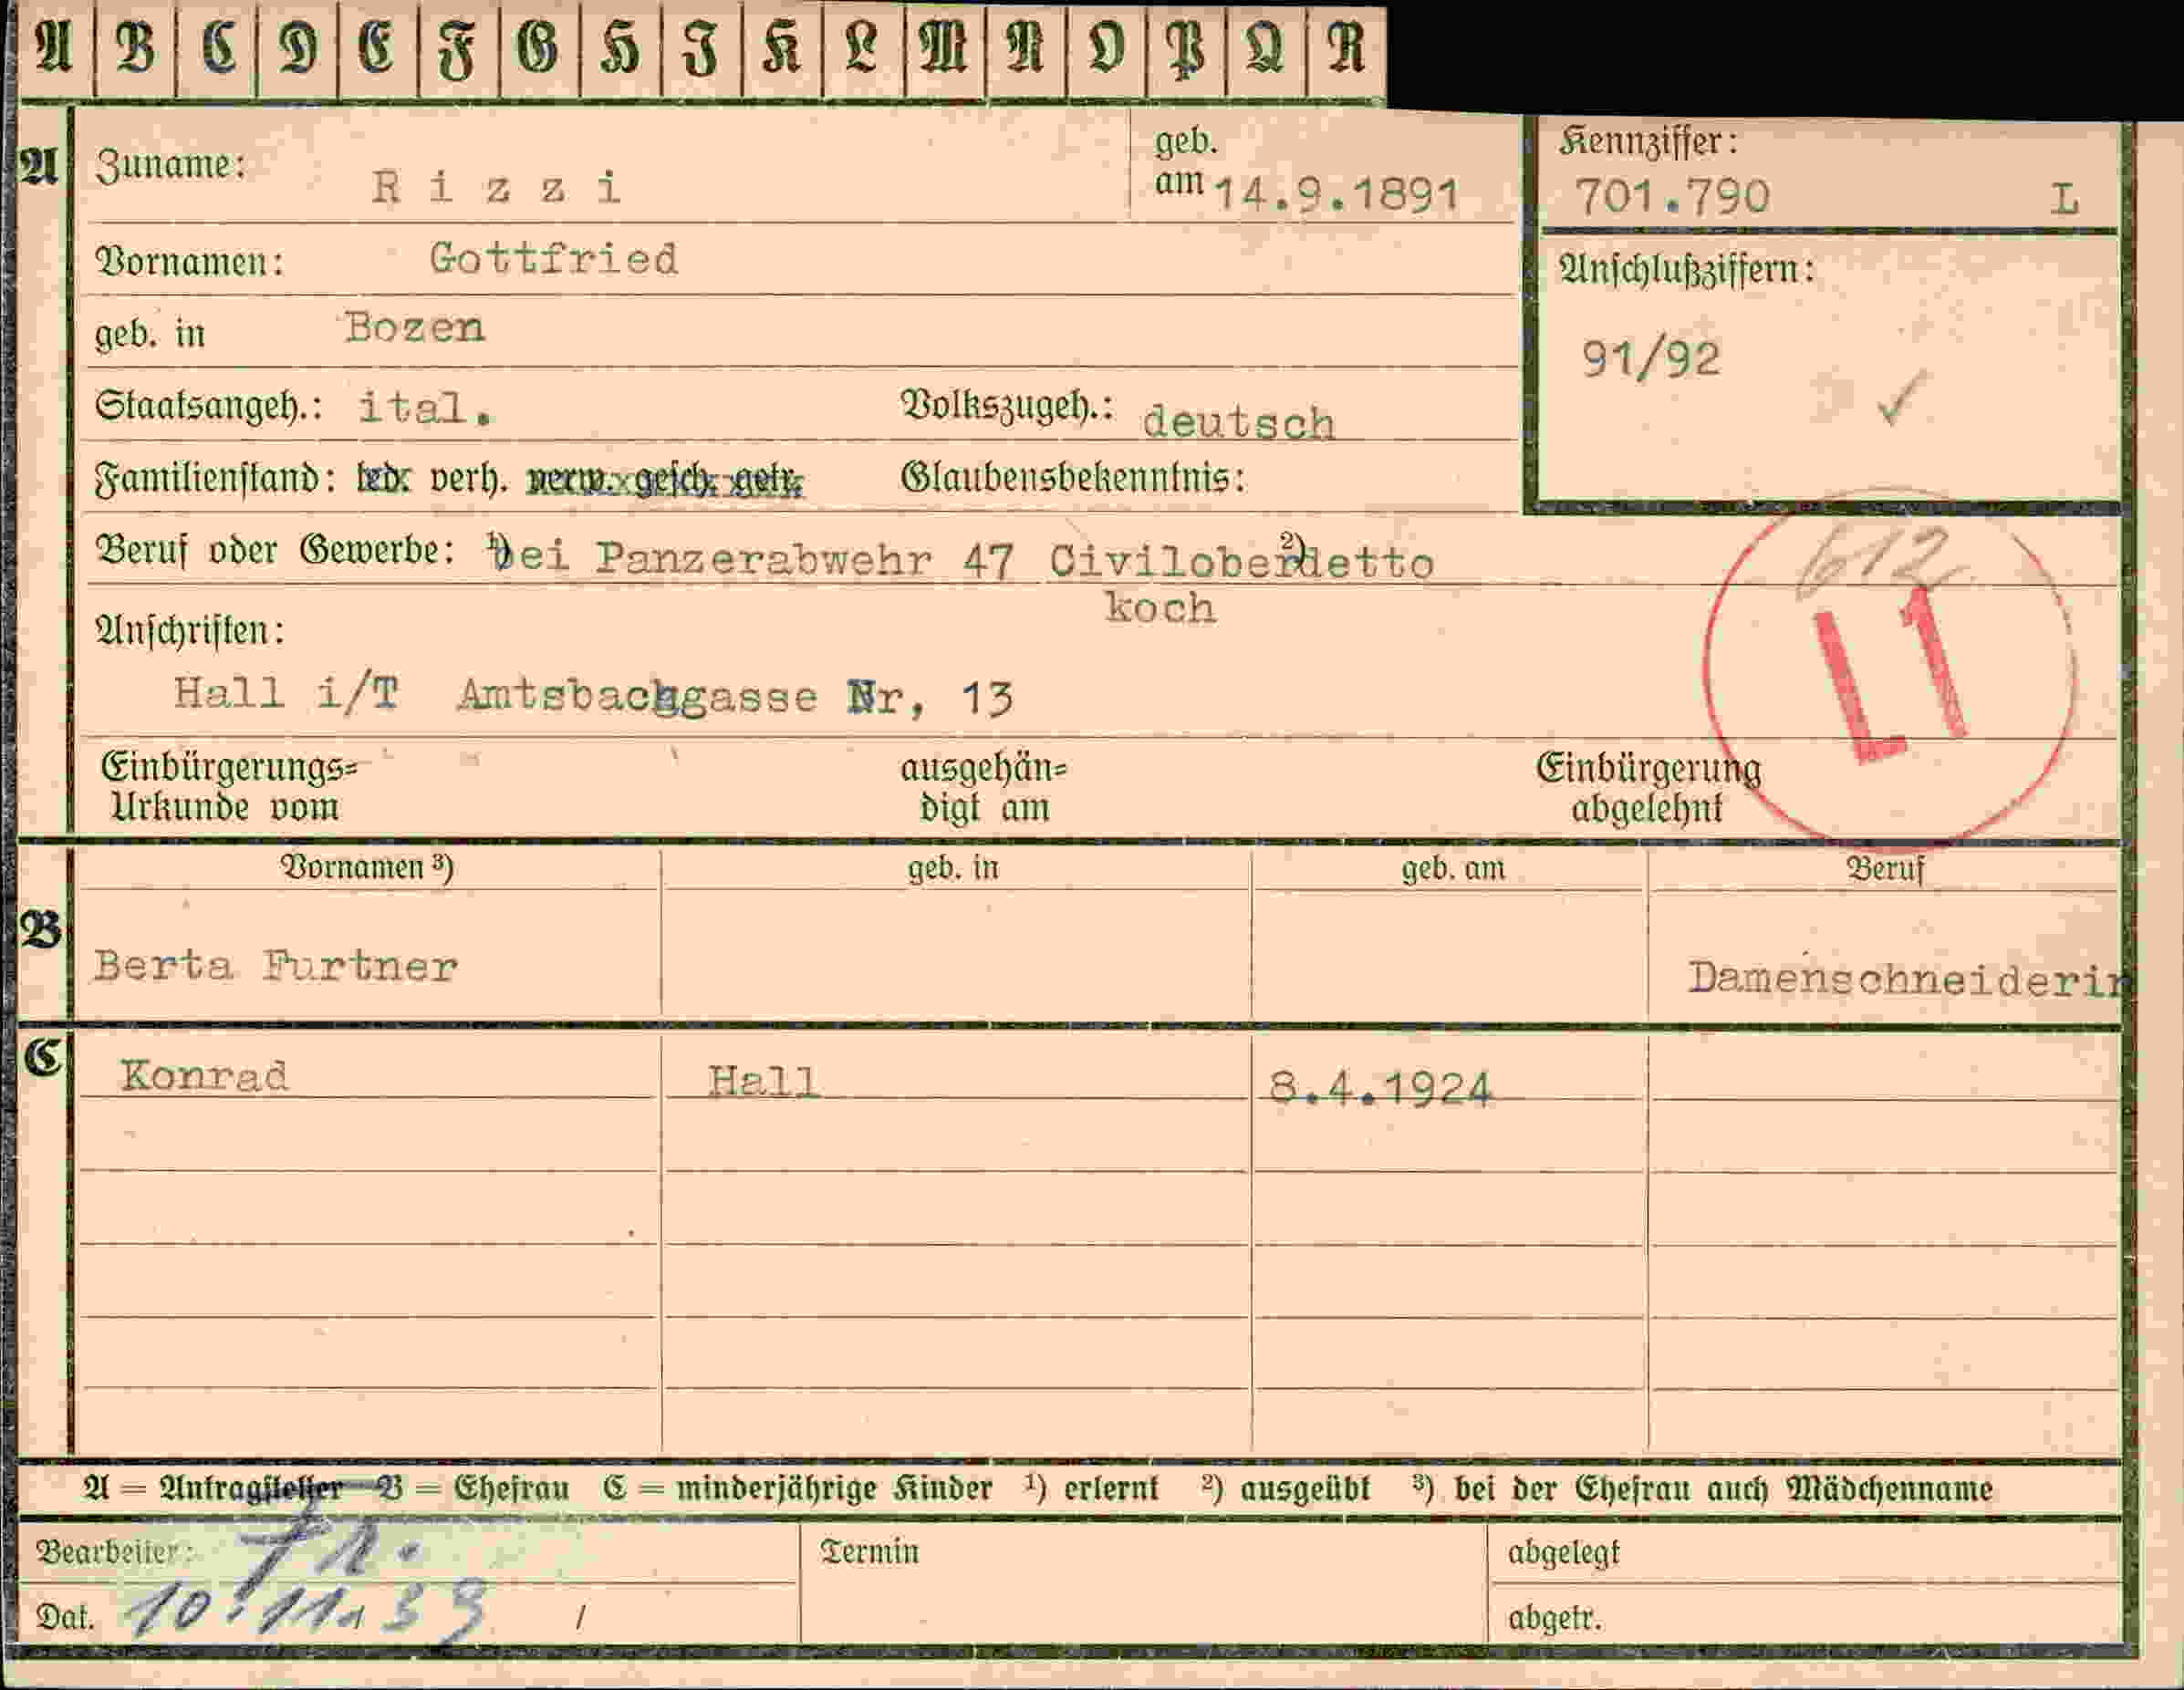 A B C D E F G H I K L M N O P Q R
A Zuname: Rizzi geb. am 14.9.1891 Kennziffer: 701.790 L
Vornamen: Gottfried Anschlußziffern:
geb. in Bozen 91/92 ✓
Staatsangeh.: ital. Volkszugeh.: deutsch
Familienstand: led. verh. verw. gesch. getr. Glaubensbekenntnis:
Beruf oder Gewerbe: 1) bei Panzerabwehr 47 Civilober 2) detto
koch
612
L1
Anschriften:
Hall i/T Amtsbachgasse Nr, 13
Einbürgerungs= ausgehän= Einbürgerung
Urkunde vom digt am abgelehnt
Vornamen 3) geb. in geb. am Beruf
B Berta Furtner Damenschneiderin
C Konrad Hall 8.4.1924
A = Antragsteller B = Ehefrau C = minderjährige Kinder 1) erlernt 2) ausgeübt 3) bei der Ehefrau auch Mädchenname
Bearbeiter: Termin abgelegt
Dat. 10.11.39 / abgetr.